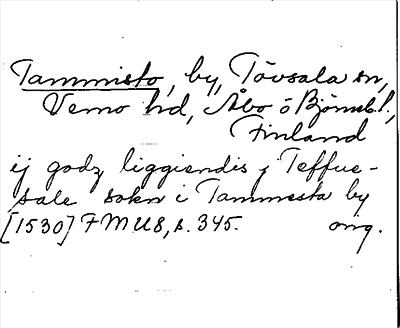 Tammisto, by, Tövsala sn,
Vemo hd, Åbo o Björneb. l.,
Finland
ij godz liggiendis j Teffue-
sale sokn i Tammesta by
[1530] FMU8, s. 345. orig.